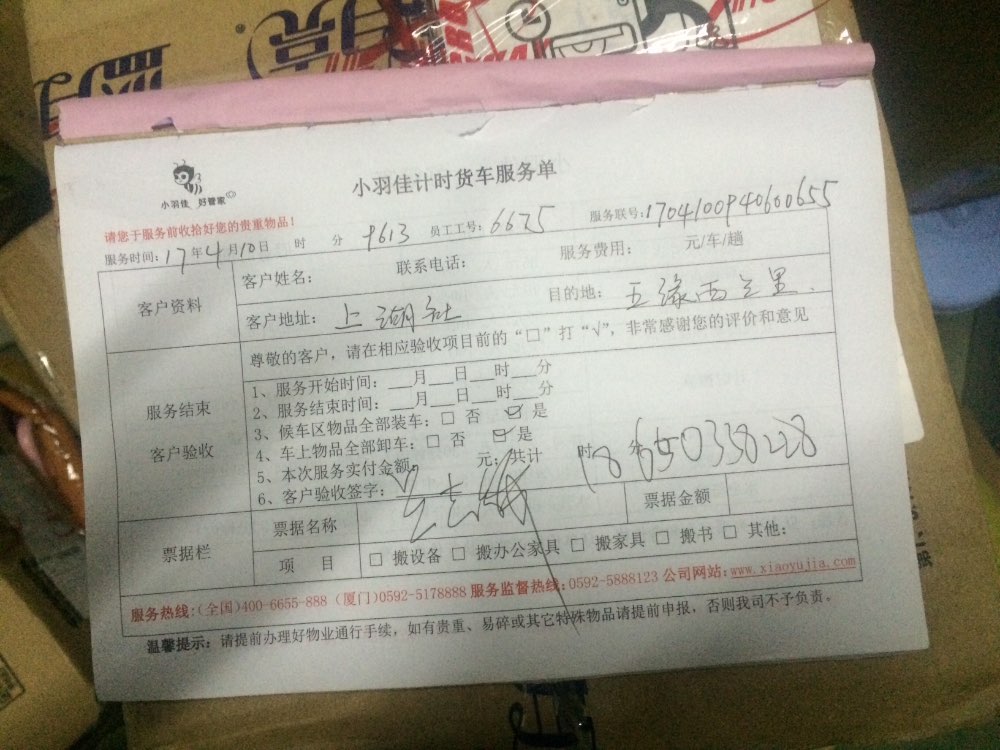 小羽佳 好管家
小羽佳计时货车服务单
请您于服务前收拾好您的贵重物品!
服务时间: 17年4月10日 时 分 9613 员工工号: 6675 服务联号: 1704100940600655
客户资料
客户姓名: 联系电话: 服务费用: 元/车/趟
客户地址: 上湖社 目的地: 五缘西三里.
服务结束
客户验收
尊敬的客户，请在相应验收项目前的“□”打“√”，非常感谢您的评价和意见
1、服务开始时间: ___月___日___时___分
2、服务结束时间: ___月___日___时___分
3、候车区物品全部装车: □ 否 ☑ 是
4、车上物品全部卸车: □ 否 ☑ 是
5、本次服务实付金额: 元; 共计 时 分
6、客户验收签字: 18650338228
票据栏
票据名称 票据金额
项 目 □ 搬设备 □ 搬办公家具 □ 搬家具 □ 搬书 □ 其他:
服务热线:(全国)400-6655-888 (厦门)0592-5178888 服务监督热线:0592-5888123 公司网站:www.xiaoyujia.com
温馨提示: 请提前办理好物业通行手续，如有贵重、易碎或其它特殊物品请提前申报，否则我司不予负责。